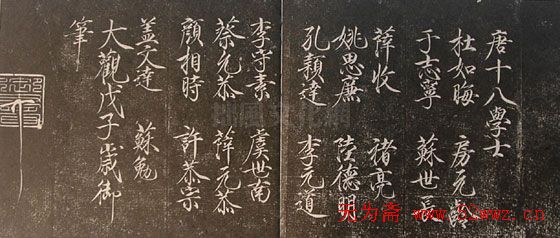 唐十八學士
杜如晦 房元齡
于志寧 蘇世長
薛收 褚亮
姚思廉 陸德明
孔穎達 李元道
李守素 虞世南
蔡元恭 薛元恭
顏相時 許恭宗
蓋文達 蘇勉
大觀戊子歲御
筆
天为斋 www.52wwz.cn